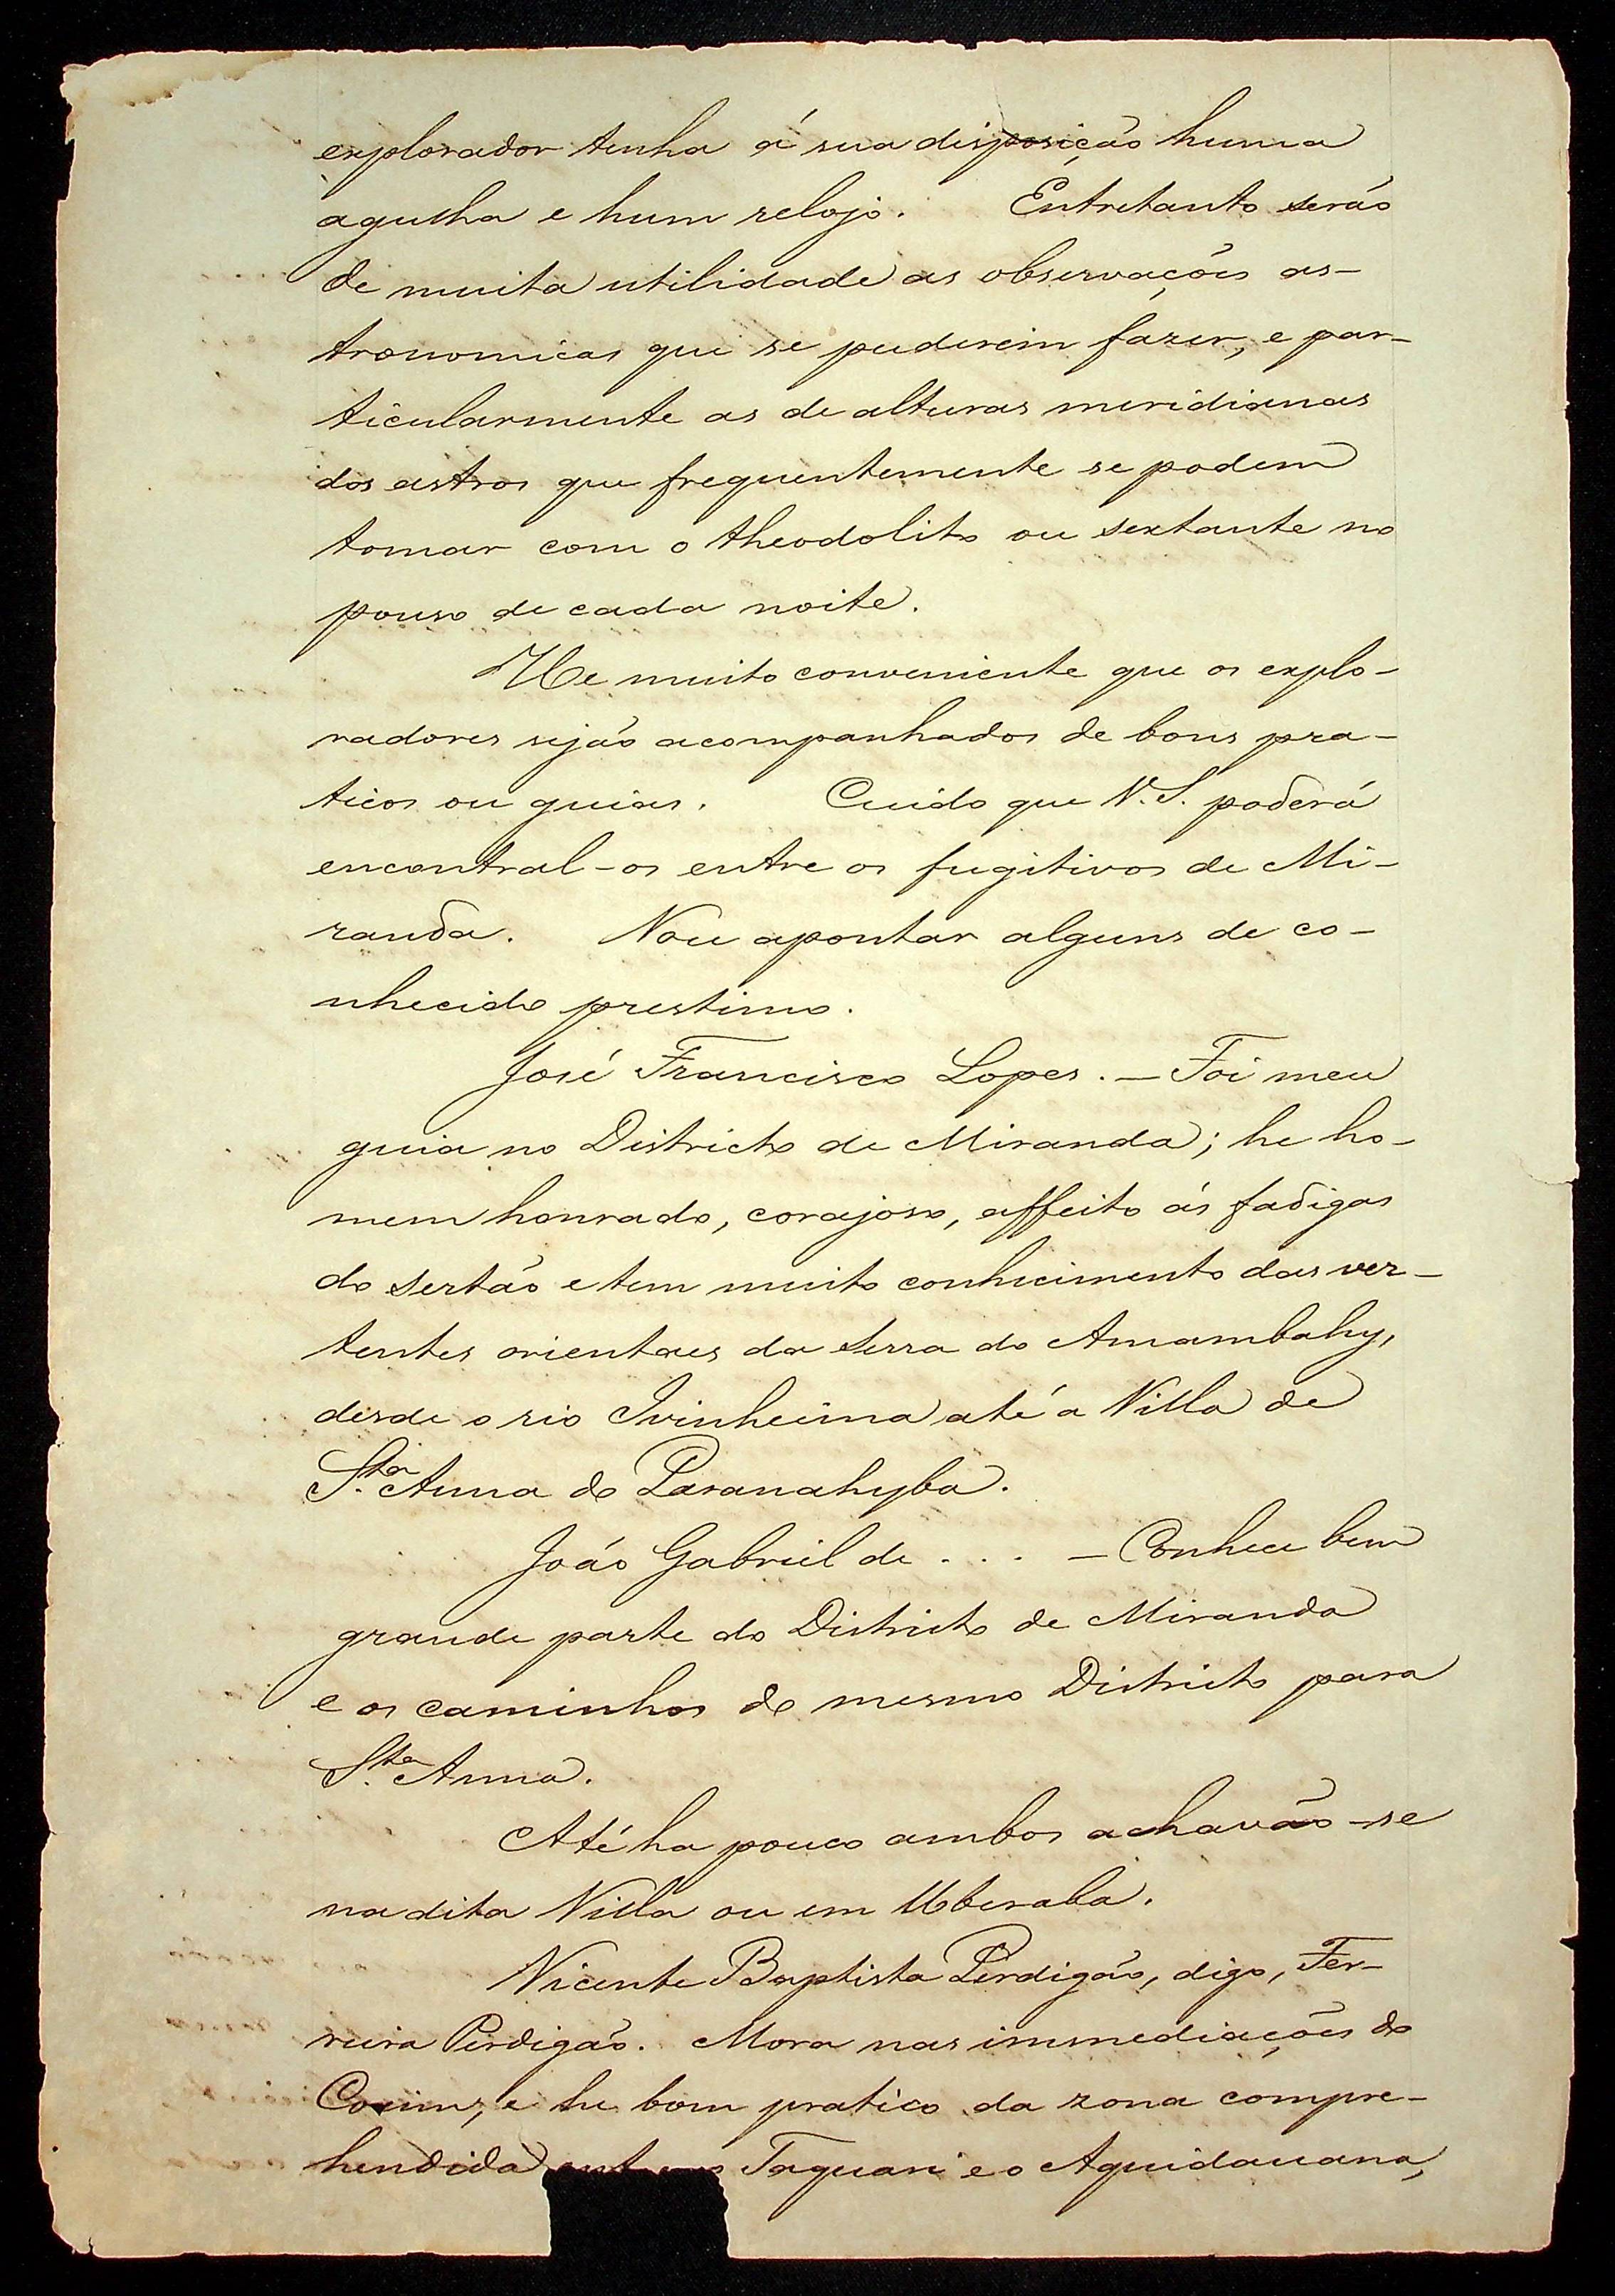 explorador tenha á sua disposição huma
agulha e hum relojo. Entretanto serão
de muita utilidade as observações as-
tronomicas que se puderem fazer, e par-
ticularmente as de alturas meridianas
dos astros que frequentemente se podem
tomar com o theodolito ou sextante no
pouso de cada noite.
He muito conveniente que os explo-
radores sejão acompanhados de bons pra-
ticos ou guias. Cuido que V. S. poderá
encontral-os entre os fugitivos de Mi-
randa. Vou apontar alguns de co-
nhecido prestimo.
José Francisco Lopes. — Foi meu
guia no Districto de Miranda; he ho-
mem honrado, corajoso, affeito ás fadigas
do sertão e tem muito conhecimento das ver-
tentes orientaes da Serra do Amambahy,
desde o rio Ivinheima até a Villa de
Sta. Anna do Paranahyba.
João Gabriel de . . . — Conhece bem
grande parte do Districto de Miranda
e os caminhos do mesmo Districto para
Sta. Anna.
Até ha pouco ambos achavão-se
na dita Villa ou em Uberaba.
Vicente Baptista Perdigão, digo, Fer-
reira Perdigão. Mora nas immediações do
Coxim, e he bom pratico da zona compre-
hendida entre o Taquari e o Aquidauana,